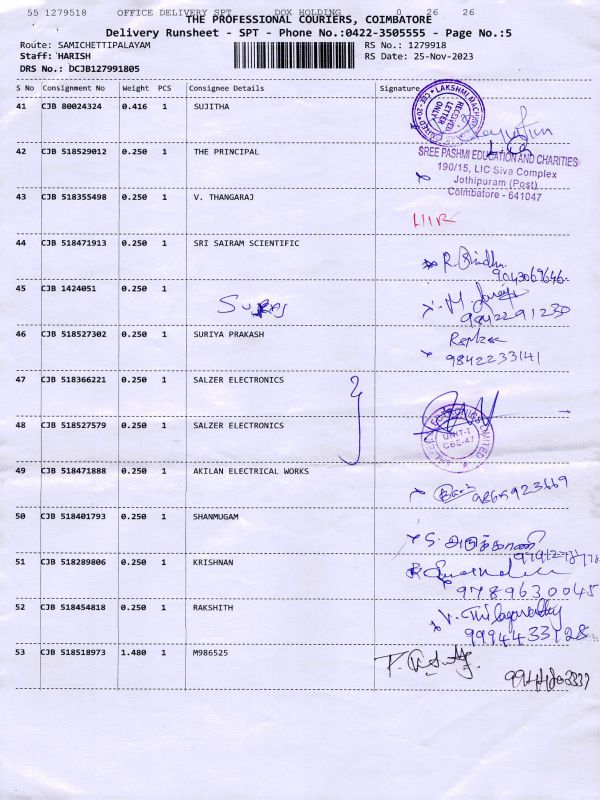 55 1279518 OFFICE DELIVERY SPT DOX HOLDING 0 26 26
THE PROFESSIONAL COURIERS, COIMBATORE
Delivery Runsheet - SPT - Phone No.:0422-3505555 - Page No.:5
Route: SAMICHETTIPALAYAM RS No.: 1279918
Staff: HARISH RS Date: 25-Nov-2023
DRS No.: DCJB127991805
S No Consignment No Weight PCS Consignee Details Signature
41 CJB 80024324 0.416 1 SUJITHA
LAKSHMI MACHINE
RECEIVED
LETTER
ONLY
42 CJB 518529012 0.250 1 THE PRINCIPAL
SREE PASHMI EDUCATION AND CHARITIES
190/15, LIC Siva Complex
Jothipuram (Post)
Coimbatore - 641047
43 CJB 518355498 0.250 1 V. THANGARAJ
44 CJB 518471913 0.250 1 SRI SAIRAM SCIENTIFIC
R. Bindhu
9043069646
45 CJB 1424051 0.250 1
SURAJ
9842291230
46 CJB 518527302 0.250 1 SURIYA PRAKASH
9842233141
47 CJB 518366221 0.250 1 SALZER ELECTRONICS
48 CJB 518527579 0.250 1 SALZER ELECTRONICS
UNIT-I
CBE-47
49 CJB 518471888 0.250 1 AKILAN ELECTRICAL WORKS
9865923669
50 CJB 518401793 0.250 1 SHANMUGAM
S. அருக்காணி
51 CJB 518289806 0.250 1 KRISHNAN
9789630045
52 CJB 518454818 0.250 1 RAKSHITH
9994433128
53 CJB 518518973 1.480 1 M986525